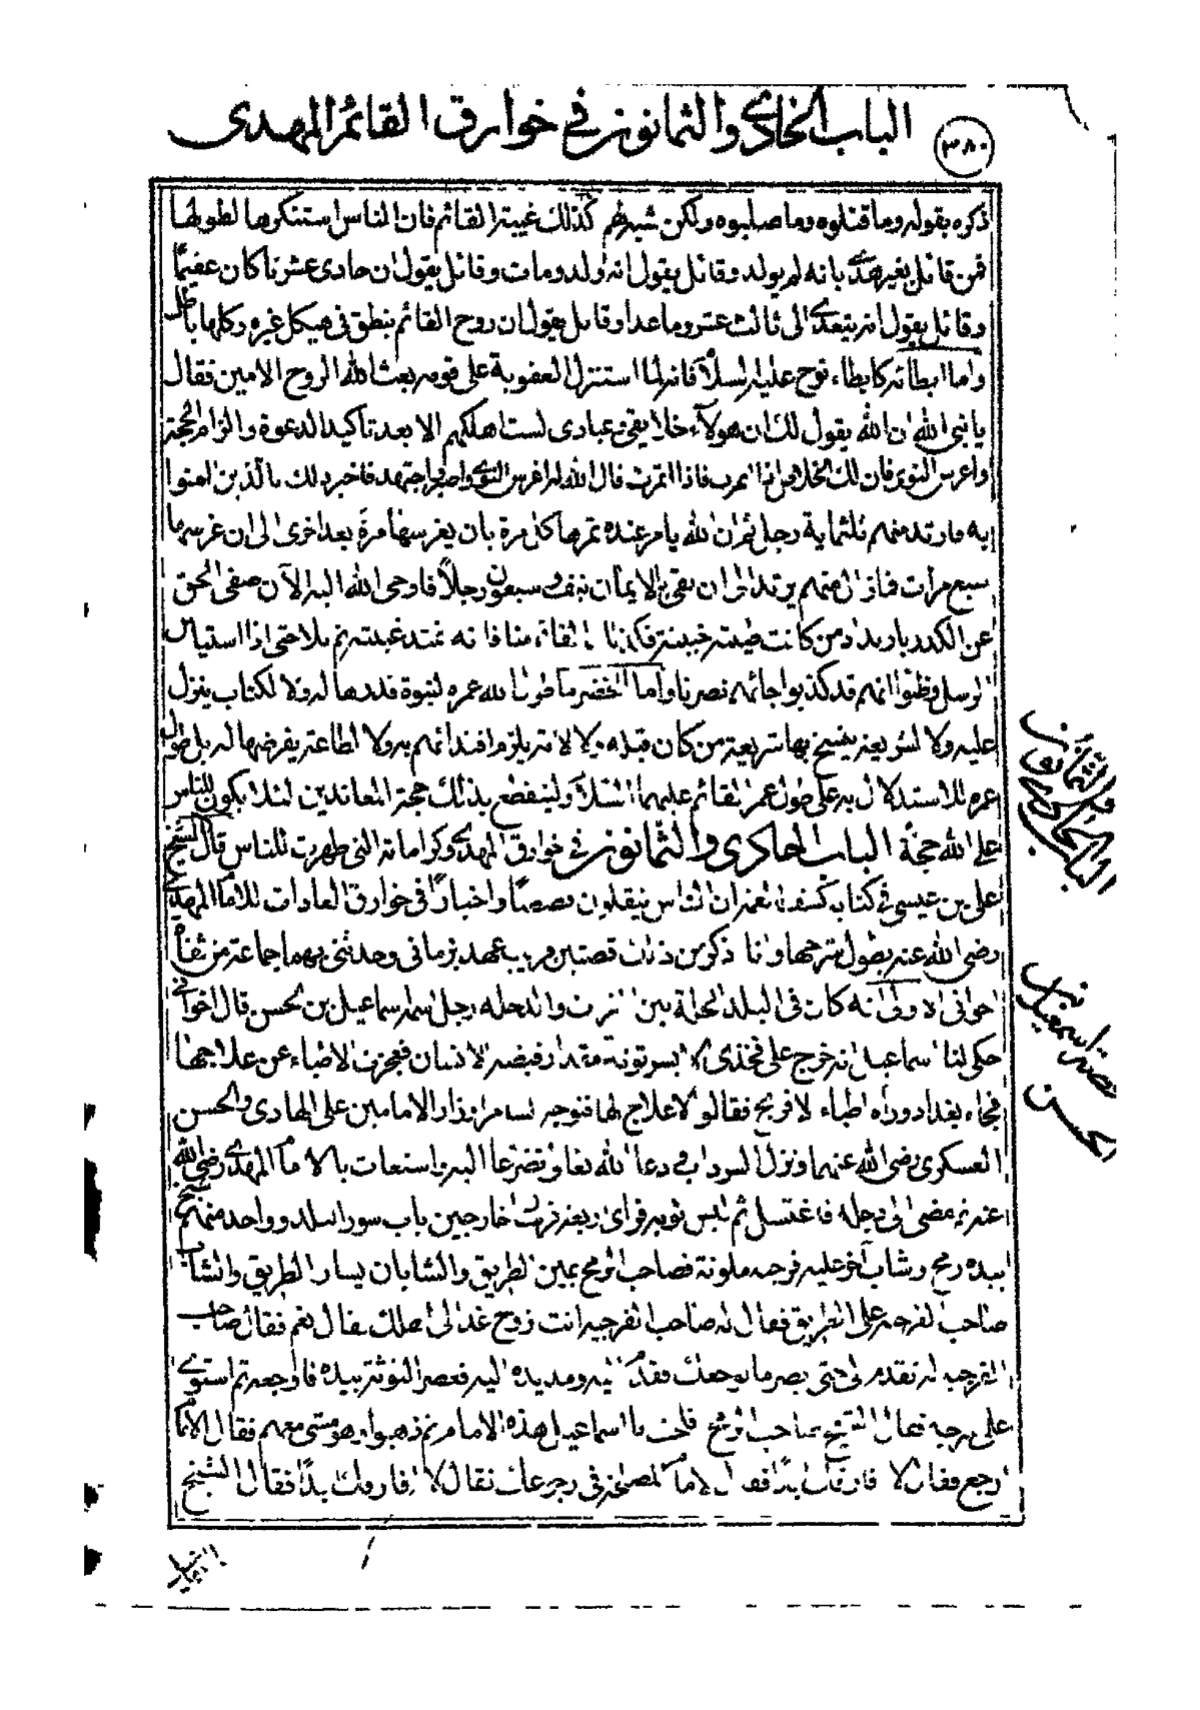 ٣٨٠
الباب الحادي والثمانون في خوارق القائم المهدى
ذكره بقوله وما قتلوه وما صلبوه ولكن شبه لهم كذلك غيبته القائم فان الناس استنكروها لطولها
فمن قائل بغير هدى بانه لم يولد وقائل يقول انه ولد ومات وقائل يقول ان حادى عشرنا كان عقيما
وقائل يقول انه يتعدى الى ثالث عشر وما عدا وقائل يقول ان روح القائم ينطق فى هيكل غيره وكلها باطل
واما ابطائه كابطاء نوح عليه السلام فانه لما استنزل العقوبة على قومه بعث الله الروح الامين فقال
يا نبي الله ان الله يقول لك ان هولاء خلايقي وعبادى لست اهلكهم الا بعد تاكيد الدعوة والزام الحجة
واغرس النوى فان لك الخلاص اذا اثمرت فاذا اثمرت قال الله له اغرس النوى واصبر واجتهد فاخبر ذلك بالذين امنوا
به فارتد منهم ثلثماية رجل ثم ان الله يامر عنده ثمرها كل مرة بان يغرسها مرة بعد اخرى الى ان غرسها
سبع مرات فما زال منهم يرتد الى ان بقى بالايمان نيف وسبعون رجلا فاوحى الله اليه الآن صفى الحق
عن الكدر بارتداد من كانت طينته خبيثة فكذلك القائم منا فانه تمتد غيبته ثم تلا حتى اذا استيأس
الرسل وظنوا انهم قد كذبوا جائهم نصرنا واما الخضر ما طول الله عمره لنبوة قدرها له ولا لكتاب ينزل
عليه ولا لشريعة ينسخ بها شريعة من كان قبله ولا لامة يلزم اقتدائهم به ولا لطاعة يفرضها له بل طول
عمره للاستدلال به على طول عمر القائم عليهما السلام ولينقطع بذلك حجة المعاندين لئلا يكون للناس
على الله حجة الباب الحادى والثمانون في خوارق المهدى وكراماته التى ظهرت للناس قال الشيخ
على بن عيسى فى كتاب كشف الغمة ان الناس ينقلون قصصا واخبارا فى خوارق العادات للامام المهدى
رضى الله عنه يطول شرحها وانا ذكر من ذلك قصتين قريب عهد بزمانى وحدثنى بهما جماعة من ثقاة
اخوانى الاولى انه كان فى البلد الحلة بين الفرات والدجلة رجل اسمه اسماعيل بن الحسن قال اخوانى
حكى لنا اسماعيل انه خرج على فخذى الايسر توتة مقدار قبضة الانسان فعجزت الاطباء عن علاجها
فجاء بغداد وراه اطباء الافرنج فقالوا لا علاج لها فتوجه لسامراء وزار الامامين على الهادى والحسن
العسكرى رضى الله عنهما ونزل السرداب ودعا الله تعالى وتضرعا اليه واستعاث بالامام المهدى رضى الله
عنه ثم مضى الى دجله فاغتسل ثم لبس ثوبه فراى اربعة فرسان خارجين باب سور البلد وواحد منهم شيخ
بيده رمح وشاب آخر عليه فرجيه ملونة فصاحب الرمح يمين الطريق والشابان يسار الطريق والشاب
صاحب الفرجيه على الطريق فقال له صاحب الفرجيه انت تروح غدا الى اهلك فقال نعم فقال صاحب
الفرجيه له تقدم لى حتى ابصر ما يوجعك فتقدم اليه ومد يده اليه فعصر التوثة بيده فاوجعه ثم استوى
على سرجه فقال الشيخ صاحب الرمح افلحت يا اسماعيل هذه الامام ثم ذهبوا وهو مشى معهم فقال الامام
ارجع فقال لا افارقك ابدا فقال الامام المصلحة فى رجوعك فقال لا افارقك ابدا فقال الشيخ
الباب الحادى والثمانون
قصة اسمعيل بن
الحسن